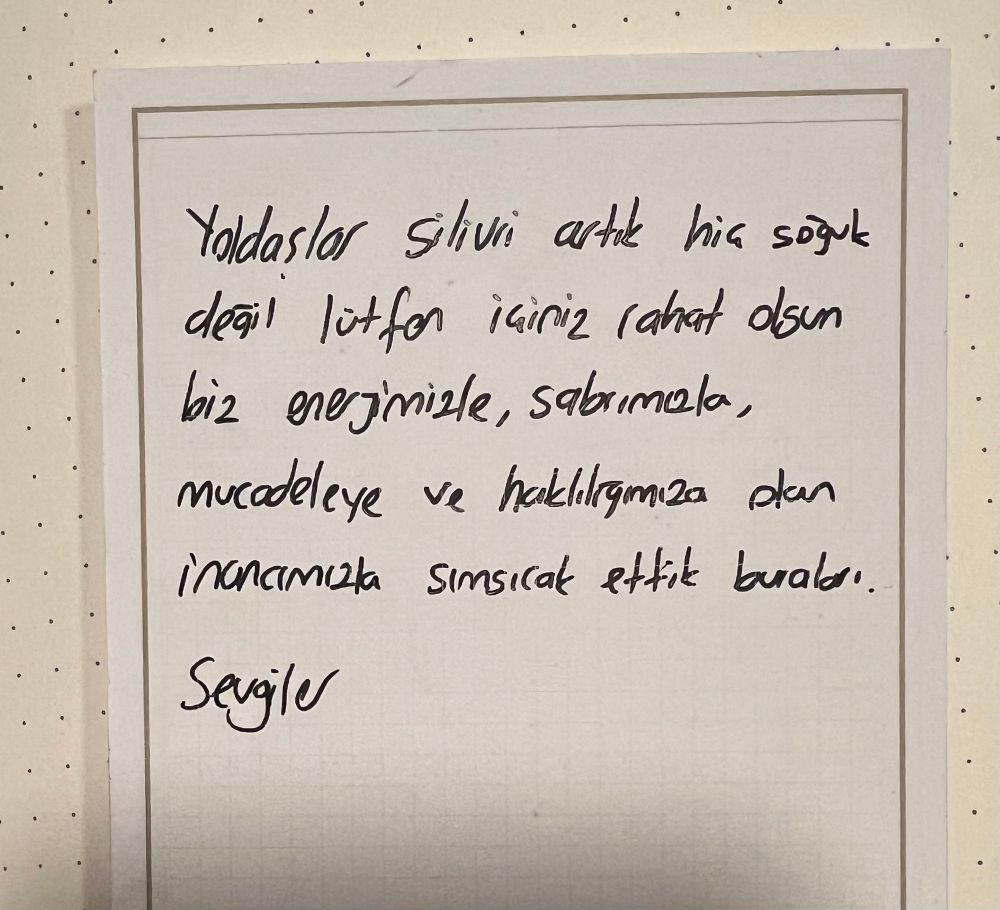 Yoldaşlar silivri artık hiç soğuk
değil lütfen içiniz rahat olsun
biz enerjimizle, sabrımızla,
mucadeleye ve haklılığımıza olan
inancımızla sımsıcak ettik buraları.
Sevgiler